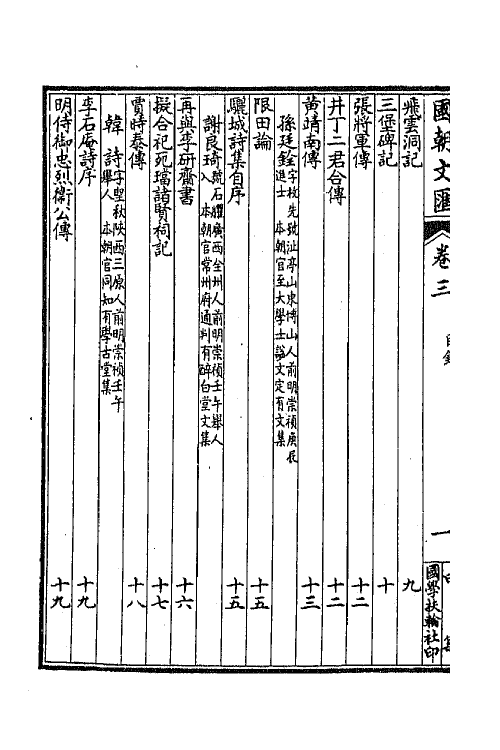 國朝文匯 卷三 一 國學扶輪社印
飛雲洞記 九
三堡碑記 十
張將軍傳 十二
井丁二君合傳 十二
黃靖南傳 十三
孫廷銓 字枚先號沚亭山東博山人前明崇禎庚辰進士 本朝官至大學士謚文定有文集
限田論 十五
驪城詩集自序 十五
謝良琦 號石臞廣西全州人前明崇禎壬午舉人 本朝官常州府通判有醉白堂文集
再與李研齋書 十六
擬合祀宛璫諸賢祠記 十七
賈時泰傳 十八
韓詩 字聖秋陝西三原人前明崇禎壬午舉人 本朝官同知有學古堂集
李石庵詩序 十九
明侍御忠烈衞公傳 十九